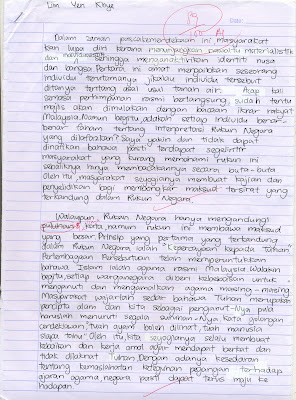 Lim Yen Khye
19
Date:
Dalam zaman pascakemerdekaan ini masyarakat
kian lupa diri kerana materialistik
dan sehingga mengaktirikan identiti nusa
dan bangsa. Perkara ini amat mengaibkan seseorang
individu terutamanya jikalau individu tersebut
ditanya tentang asal usul tanah air. Atap kali
semasa perhimpunan rasmi berlangsung, sudah tentu
majlis akan dimulakan dengan bacaan ikrar rakyat
Malaysia. Namun begitu, adakah setiap individu benar-
benar faham tentang interpretasi Rukun Negara
yang diikrarkan? Saya yakin dan tidak dapat
dinafikan bahawa pasti terdapat segelintir
masyarakat yang kurang memahami rukun ini
sebaliknya hanya membacakannya secara buta-buta
Oleh itu, masyarakat seyogianya membuat kajian dan
penyelidikan bagi membongkar maksud tersirat yang
terkandung dalam Rukun Negara.
Walaupun Rukun Negara hanya mengandungi
puluhan kata, namun rukun ini membawa maksud
yang besar. Prinsip yang pertama yang terkandung
dalam Rukun Negara ialah "Kepercayaan kepada Tuhan"
Perlembagaan Persekutuan telah memperuntukkan
bahawa Islam ialah agama rasmi Malaysia. Walaupun
begitu, setiap warganegara diberi kebebasan untuk
menganuti dan mengamalkan agama masing-masing
Masyarakat wajarlah sedar bahawa Tuhan merupakan
pencipta alam dan kita sebagai penganut-Nya pula
haruslah menuruti segala suruhan-Nya. Kata golongan
cendekiawan, "buah ayam boleh dilihat, buah manusia
siapa tahu". Oleh itu, kita seyogianya selalu membuat
kebaikan dan kerja amal agar mendapat berkat dan
tidak dilaknat Tuhan. Dengan adanya kesedaran
tentang kemaslahatan keteguhan pegangan terhadap
ajaran agama, negara pasti dapat terus maju ke
hadapan.